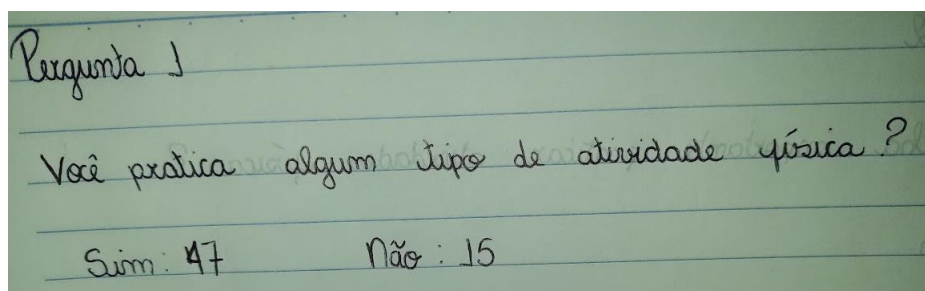 Pergunta 1
Você pratica algum tipo de atividade física?
Sim: 47 Não: 15